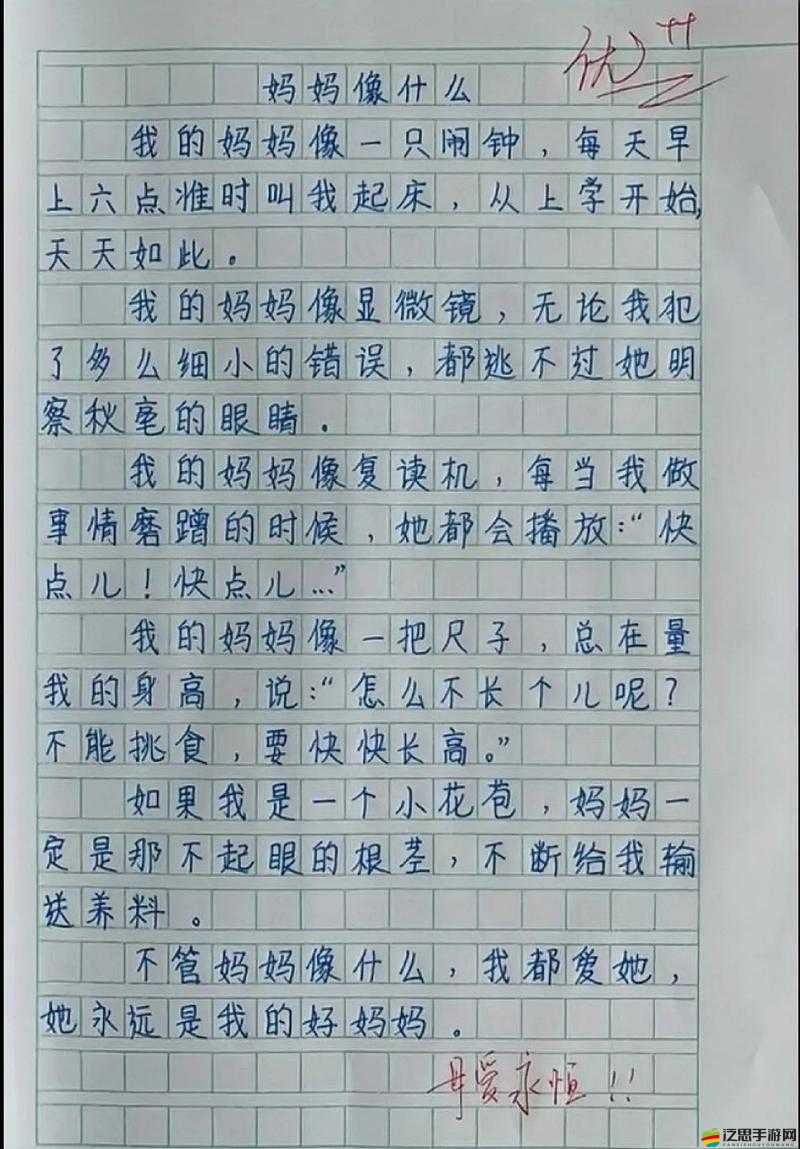 优++
妈妈像什么
我的妈妈像一只闹钟，每天早
上六点准时叫我起床，从上学开始，
天天如此。
我的妈妈像显微镜，无论我犯
了多么细小的错误，都逃不过她明
察秋毫的眼睛.
我的妈妈像复读机，每当我做
事情磨蹭的时候，她都会播放:“快
点儿！快点儿…”
我的妈妈像一把尺子，总在量
我的身高，说:“怎么不长个儿呢？
不能挑食，要快快长高。”
如果我是一个小花苞，妈妈一
定是那不起眼的根茎，不断给我输
送养料。
不管妈妈像什么，我都爱她，
她永远是我的好妈妈。
母爱永恒!!
泛思手游网
FANSISHOUYOUWANG